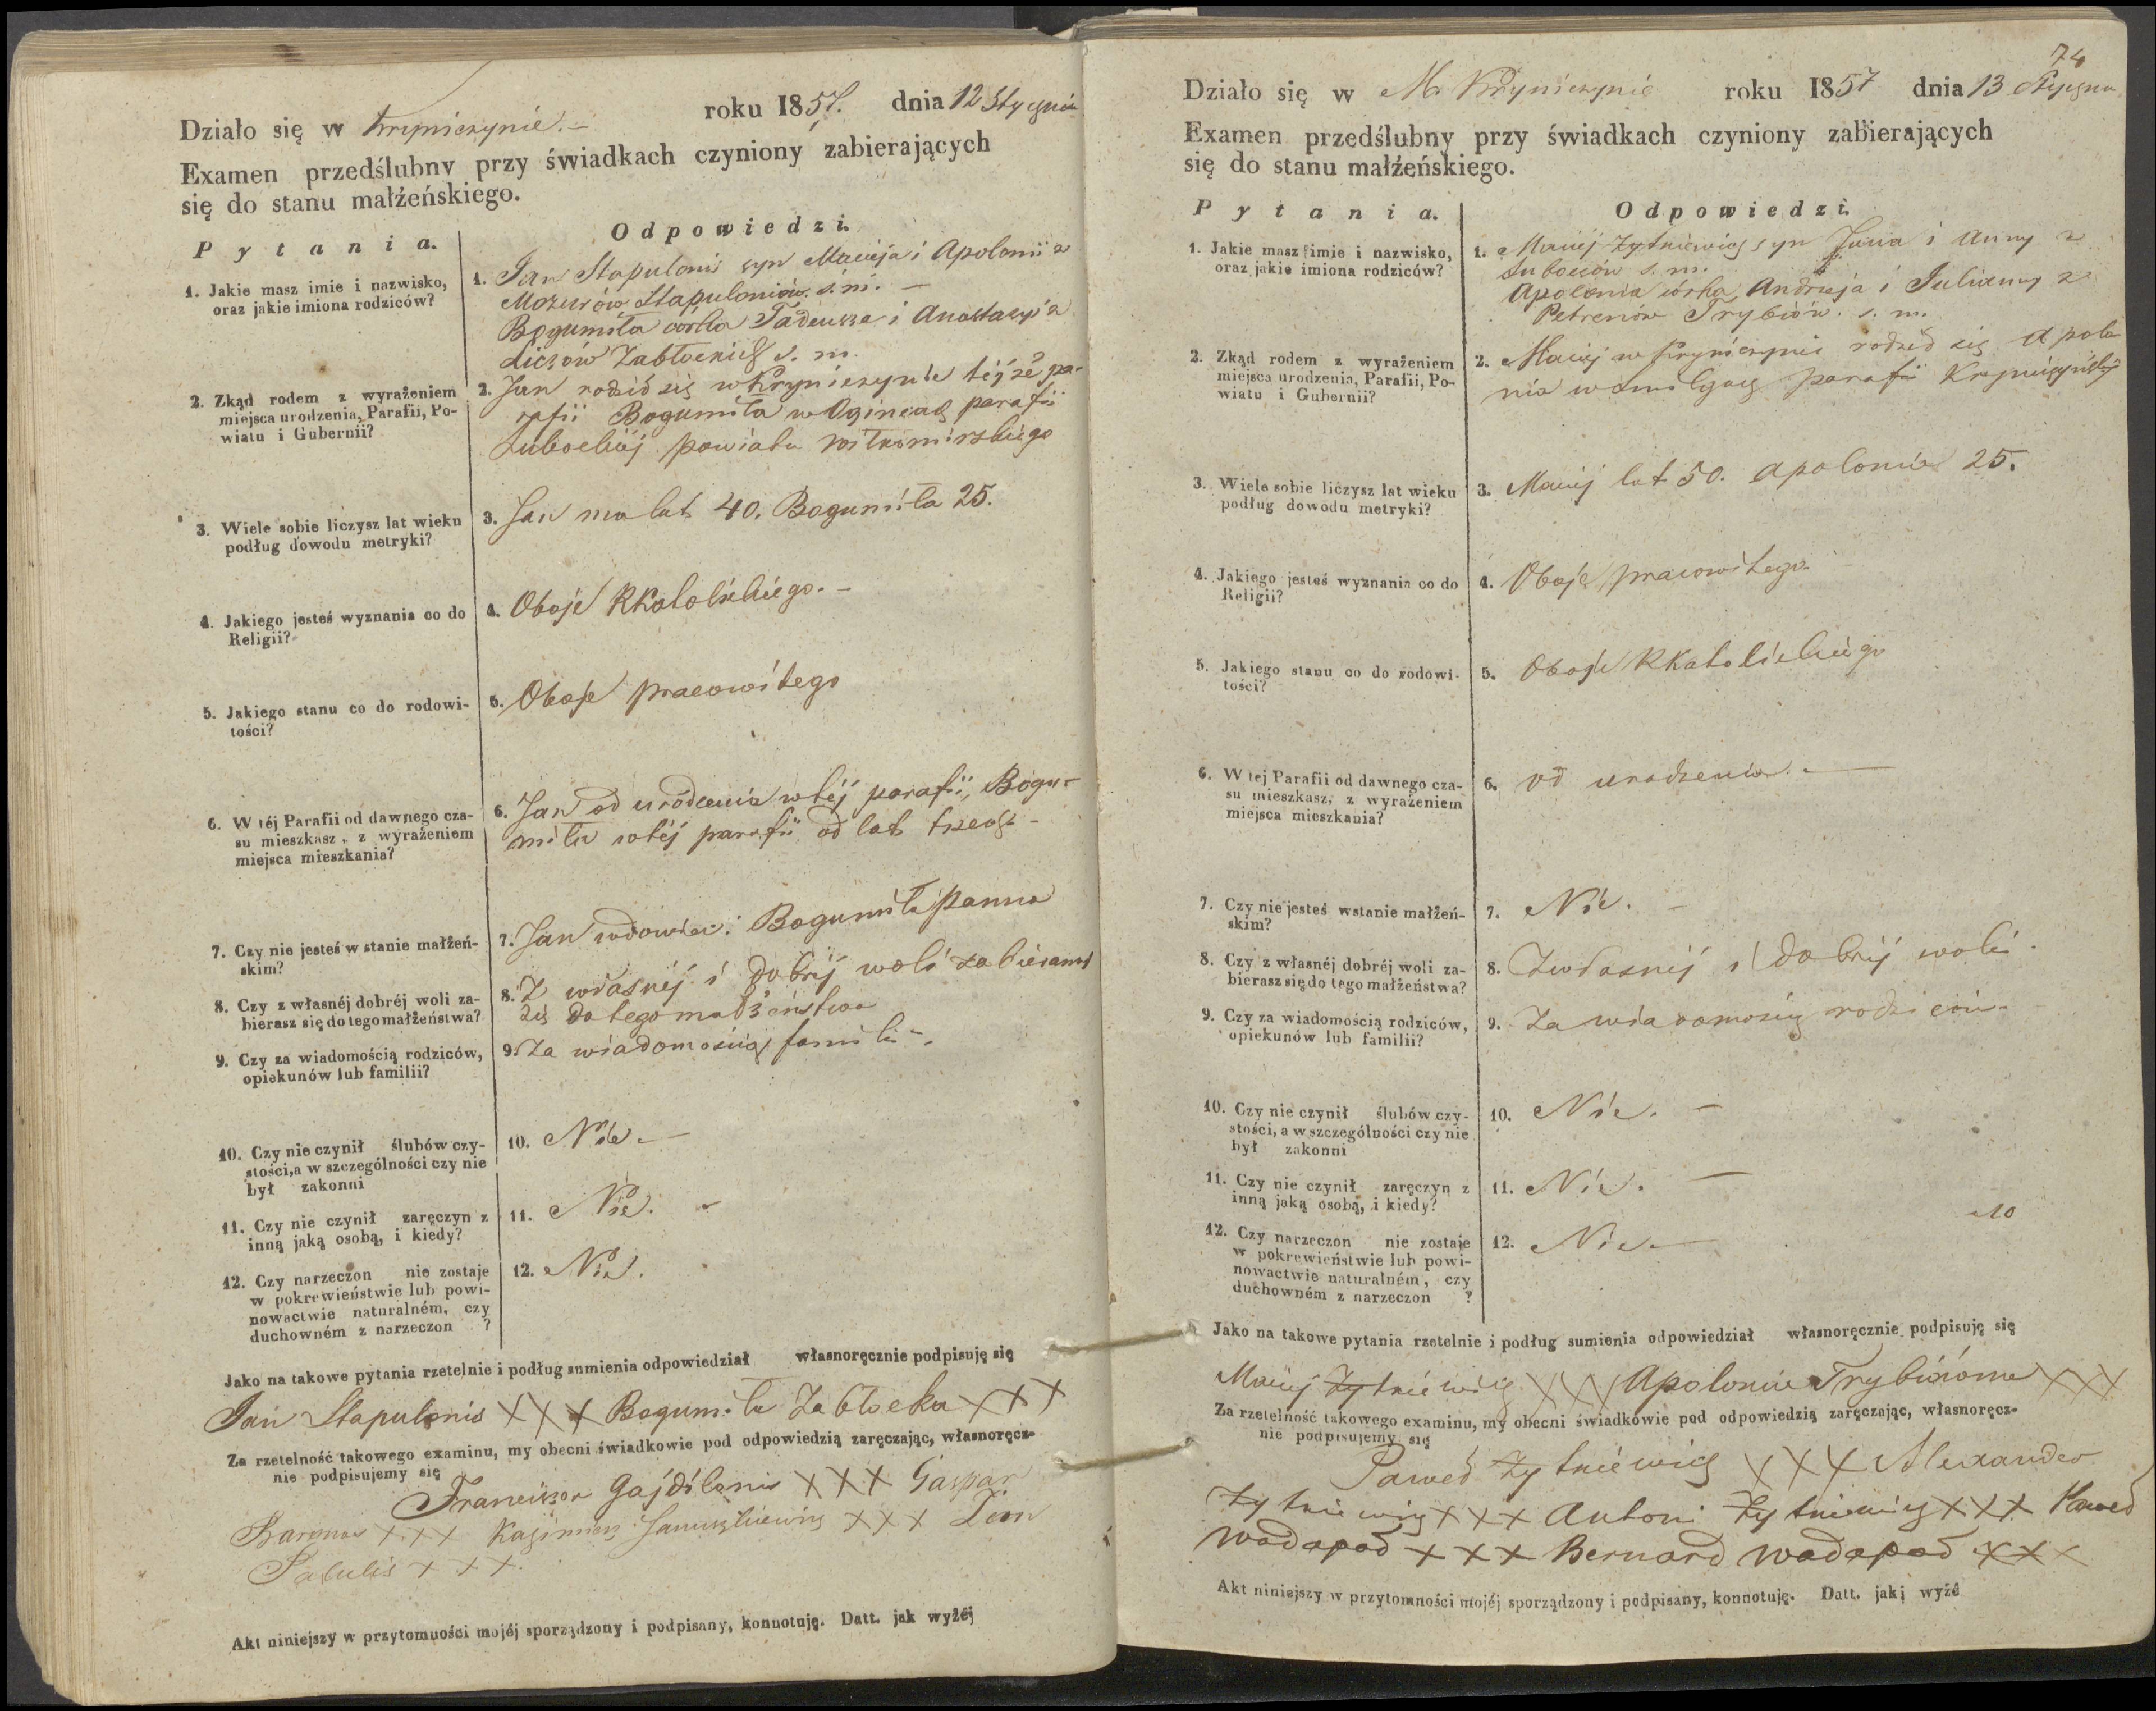 Działo się w Kryniczynie.- roku 1857. dnia 12 Stycznia
Examen przedślubny przy świadkach czyniony zabierających
się do stanu małżeńskiego.
Pytania.
Odpowiedzi.
1. Jakie masz imie i nazwisko,
oraz jakie imiona rodziców?
1. Jan Stapulonis syn Macieja i Apolonii z
Mozurów Stapuloniów. s. m. -
Bogumiła córka Tadeusza i Anastazyi z
Liczów Zabłockich s. m.
2. Zkąd rodem z wyrażeniem
miejsca urodzenia, Parafii, Po-
wiatu i Gubernii?
2. Jan rodził się w Kryniczynie téjże pa-
rafii Bogumiła w Ogincach parafii
Subockiéj powiatu Wiłkomirskiego
3. Wiele sobie liczysz lat wieku
podług dowodu metryki?
3. Jan ma lat 40. Bogumiła 25.
4. Jakiego jesteś wyznania co do
Religii?
4. Oboje RKatolickiego. -
5. Jakiego stanu co do rodowi-
tości?
5. Oboje pracowitego
6. W téj Parafii od dawnego cza-
su mieszkasz, z wyrażeniem
miejsca mieszkania?
6. Jan od urodzenia w téj parafii, Bogu-
miła w téj parafii od lat trzech -
7. Czy nie jesteś w stanie małżeń-
skim?
7. Jan wdowiec. Bogumiła Panna
8. Czy z własnéj dobréj woli za-
bierasz się do tego małżeństwa?
8. Z własnéj i dobréj woli zabieramy
się do tego małżeństwa
9. Czy za wiadomością rodziców,
opiekunów lub familii?
9. Za wiadomością familii -.
10. Czy nie czynił ślubów czy-
stości, a w szczególności czy nie
był zakonni
10. Nie. -
11. Czy nie czynił zaręczyn z
inną jaką osobą, i kiedy?
11. Nie. -
12. Czy narzeczon nie zostaje
w pokrewieństwie lub powi-
nowactwie naturalném, czy
duchowném z narzeczon ?
12. Nie.
Jako na takowe pytania rzetelnie i podług sumienia odpowiedział własnoręcznie podpisuję się
Jan Stapulonis XXX Bogumiła Zabłocka XXX
Za rzetelność takowego examinu, my obecni świadkowie pod odpowiedzią zaręczając, własnoręcz-
nie podpisujemy się
Franciszek Gajdilonis XXX Gaspar
Baronas XXX Kazimierz Januszkiewicz XXX Leon
XXX.
Akt niniejszy w przytomności mojéj sporządzony i podpisany, konnotuję. Datt. jak wyźéj
74
Działo się w M. Kryniczynie roku 1857 dnia 13 Stycznia
Examen przedślubny przy świadkach czyniony zabierających
się do stanu małżeńskiego.
Pytania.
Odpowiedzi.
1. Jakie masz imie i nazwisko,
oraz jakie imiona rodziców?
1. Maciej Żytkiewicz syn Jana i Anny z
s. m.
Apolonia córka Andrzeja i Julianny z
Petrenów Trybiów. s. m.
2. Zkąd rodem z wyrażeniem
miejsca urodzenia, Parafii, Po-
wiatu i Gubernii?
2. Maciej w Kryniczynie rodził się Apolo-
nia w parafii
3. Wiele sobie liczysz lat wieku
podług dowodu metryki?
3. Maciej lat 50. Apolonia 25.
4. Jakiego jesteś wyznania co do
Religii?
4. Oboje pracowitego
5. Jakiego stanu co do rodowi-
tości?
5. Oboje RKatolickiego
6. W tej Parafii od dawnego cza-
su mieszkasz, z wyrażeniem
miejsca mieszkania?
6. od urodzenia. -
7. Czy nie jesteś w stanie małżeń-
skim?
7. Nie. -
8. Czy z własnéj dobréj woli za-
bierasz się do tego małżeństwa?
8. Z własnéj i dobréj woli.
9. Czy za wiadomością rodziców,
opiekunów lub familii?
9. Za wiadomością rodziców.
10. Czy nie czynił ślubów czy-
stości, a w szczególności czy nie
był zakonni
10. Nie. -
11. Czy nie czynił zaręczyn z
inną jaką osobą, i kiedy?
11. Nie. -
12. Czy narzeczon nie zostaje
w pokrewieństwie lub powi-
nowactwie naturalném, czy
duchowném z narzeczon ?
12. Nie. -
Jako na takowe pytania rzetelnie i podług sumienia odpowiedział własnoręcznie podpisuję się
Maciej Żytkiewicz XXX Apolonia Trybiówna XXX
Za rzetelność takowego examinu, my obecni świadkowie pod odpowiedzią zaręczając, własnoręcz-
nie podpisujemy się
Paweł Żytkiewicz XXX Alexander
Żytkiewicz XXX Antoni Żytkiewicz XXX Paweł
Wodopoł XXX Bernard Wodopoł XXX
Akt niniejszy w przytomności mojéj sporządzony i podpisany, konnotuję. Datt. jak wyźé